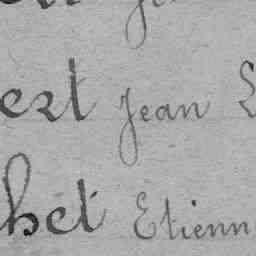 ert Jean
het Etienn